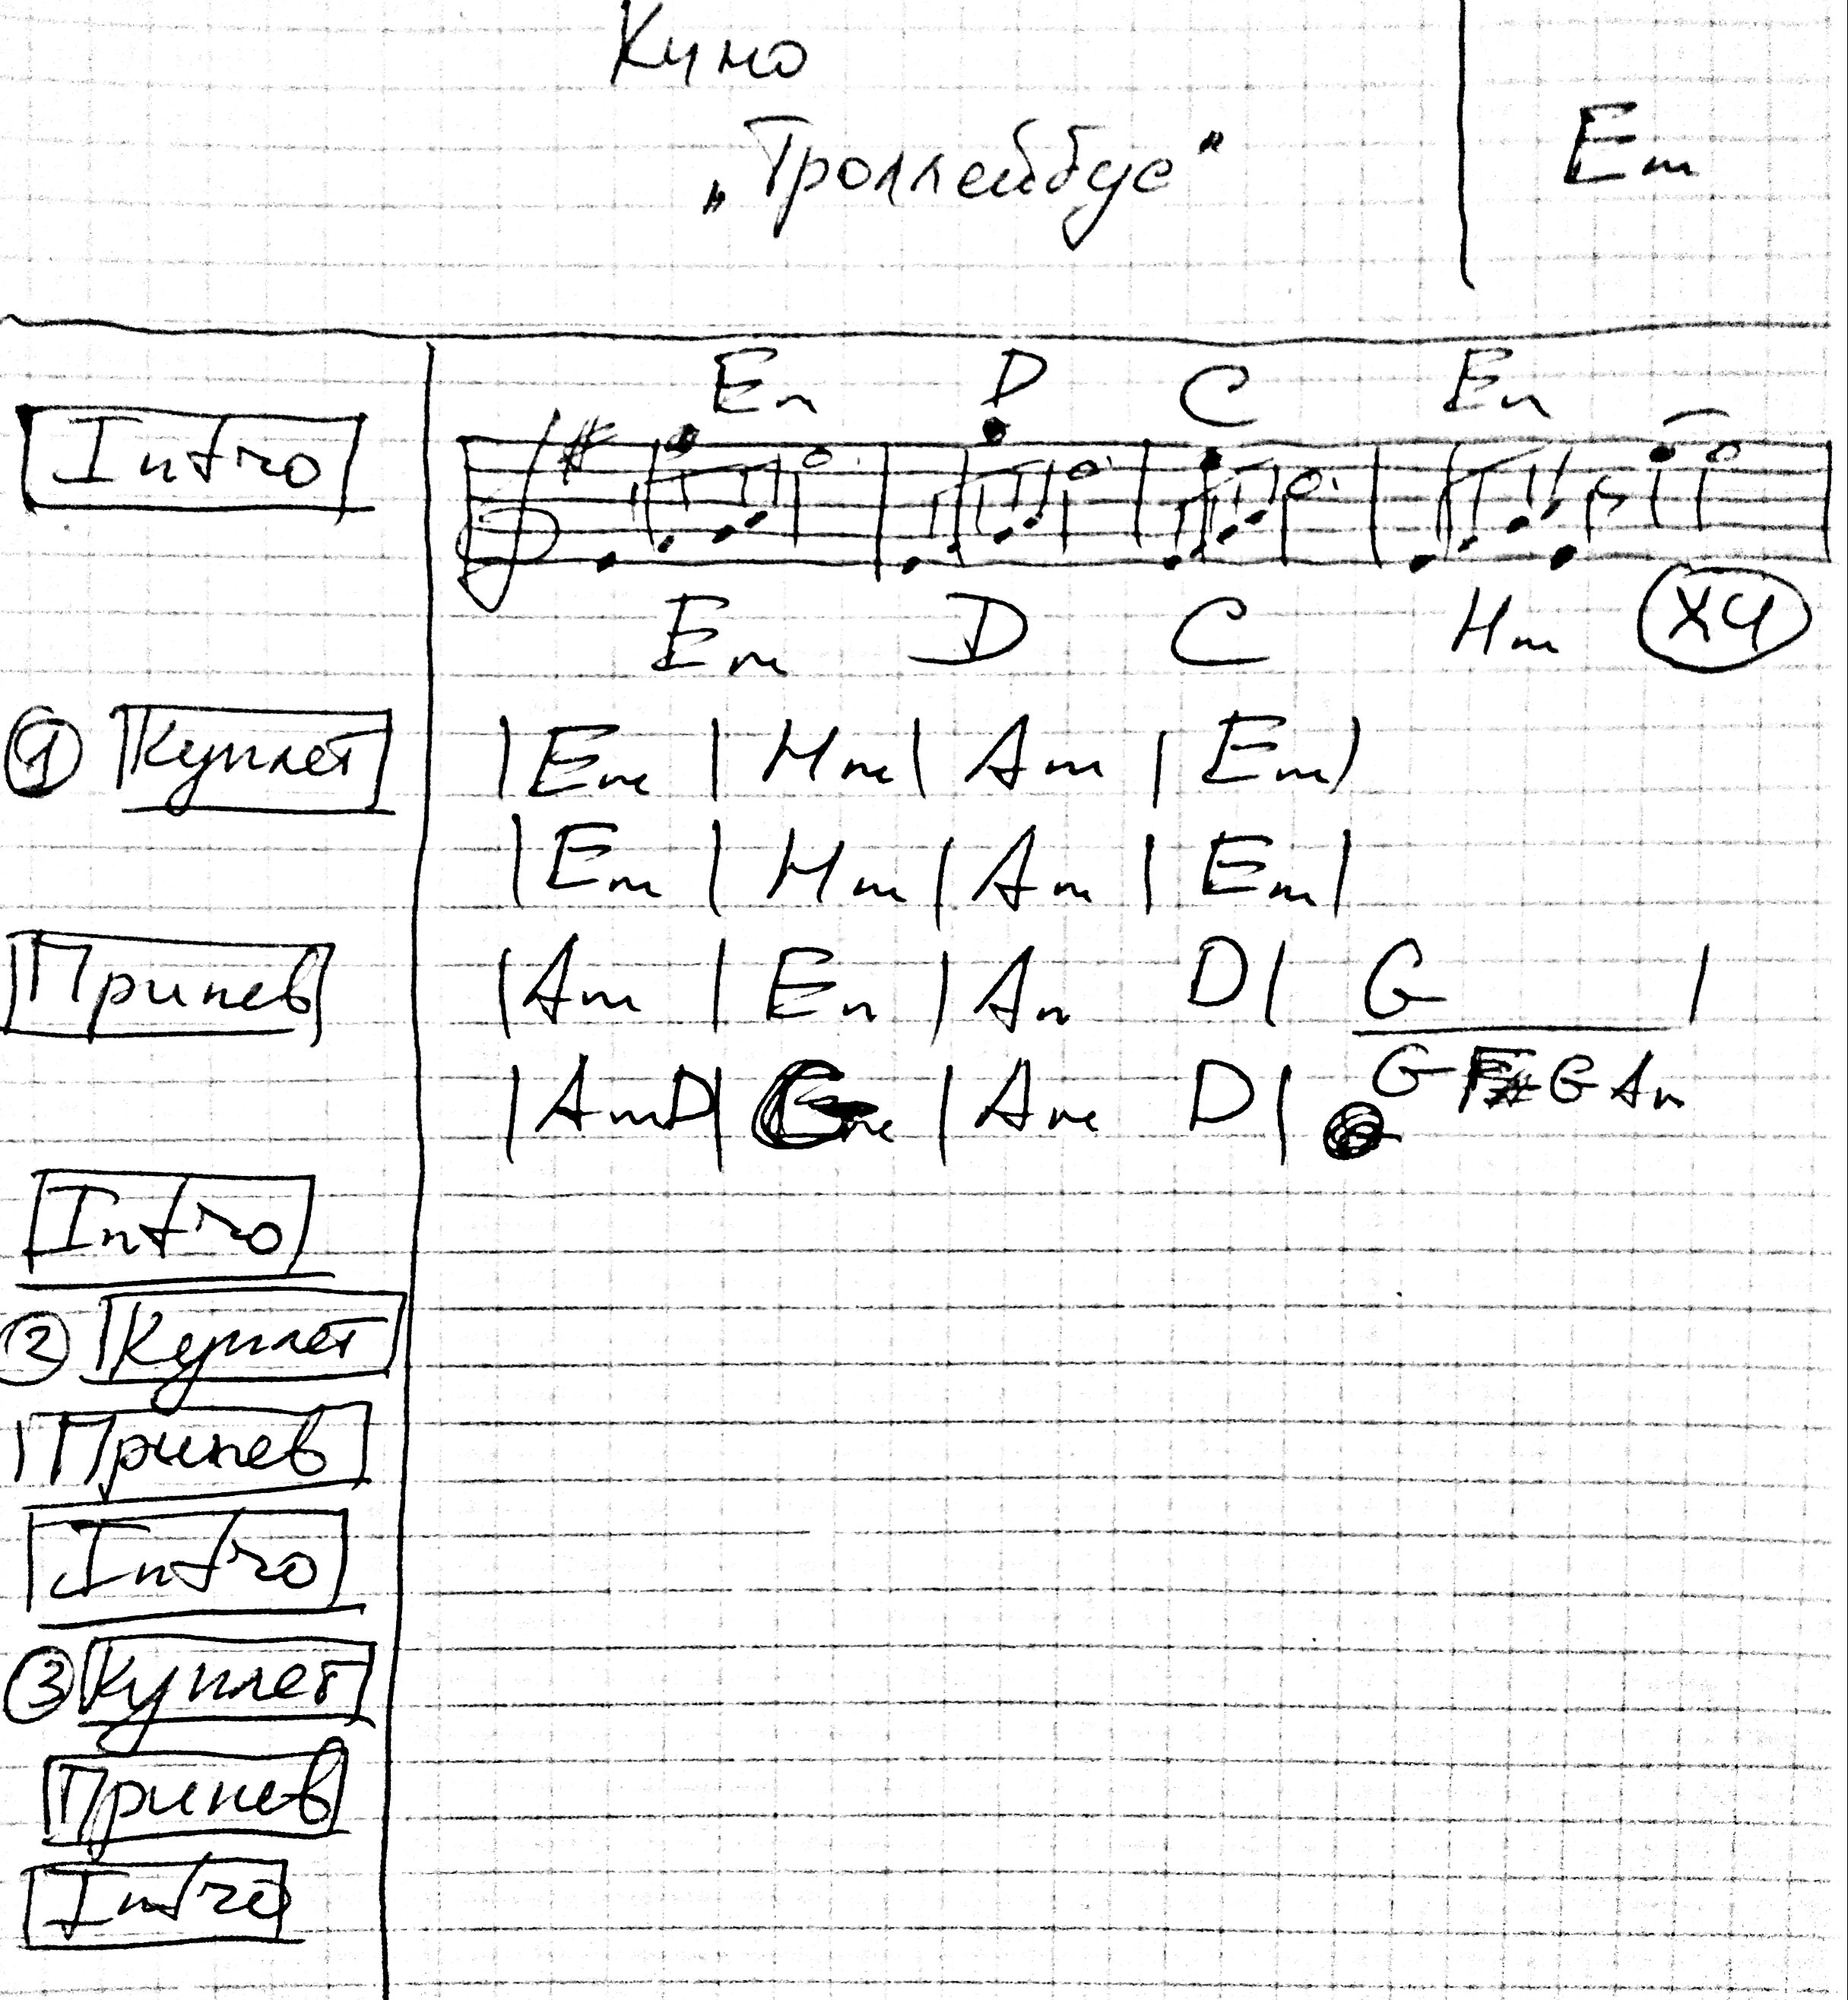 Кино
„Троллейбус“
Em
Em D C Em
Intro
Em D C Hm X4
1 Куплет |Em | Hm | Am | Em|
|Em | Hm | Am | Em|
Припев |Am | Em | Am D | G |
|Am D| | Am D | G F# G Am
Intro
2 Куплет
Припев
Intro
3 Куплет
Припев
Intro